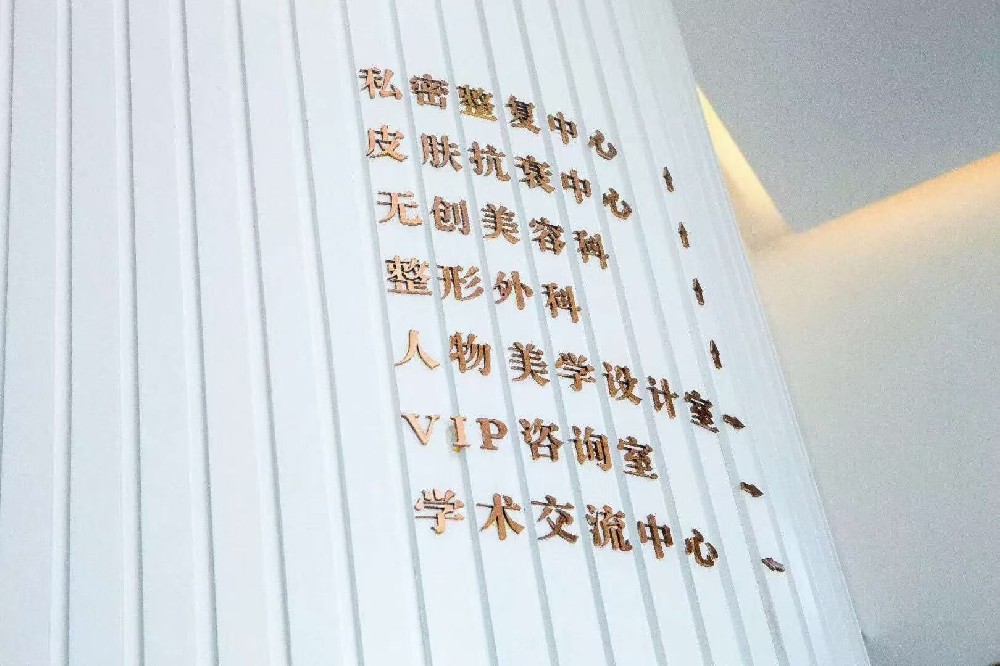 私密整复中心
皮肤抗衰中心
无创美容科
整形外科
人物美学设计室
VIP咨询室
学术交流中心